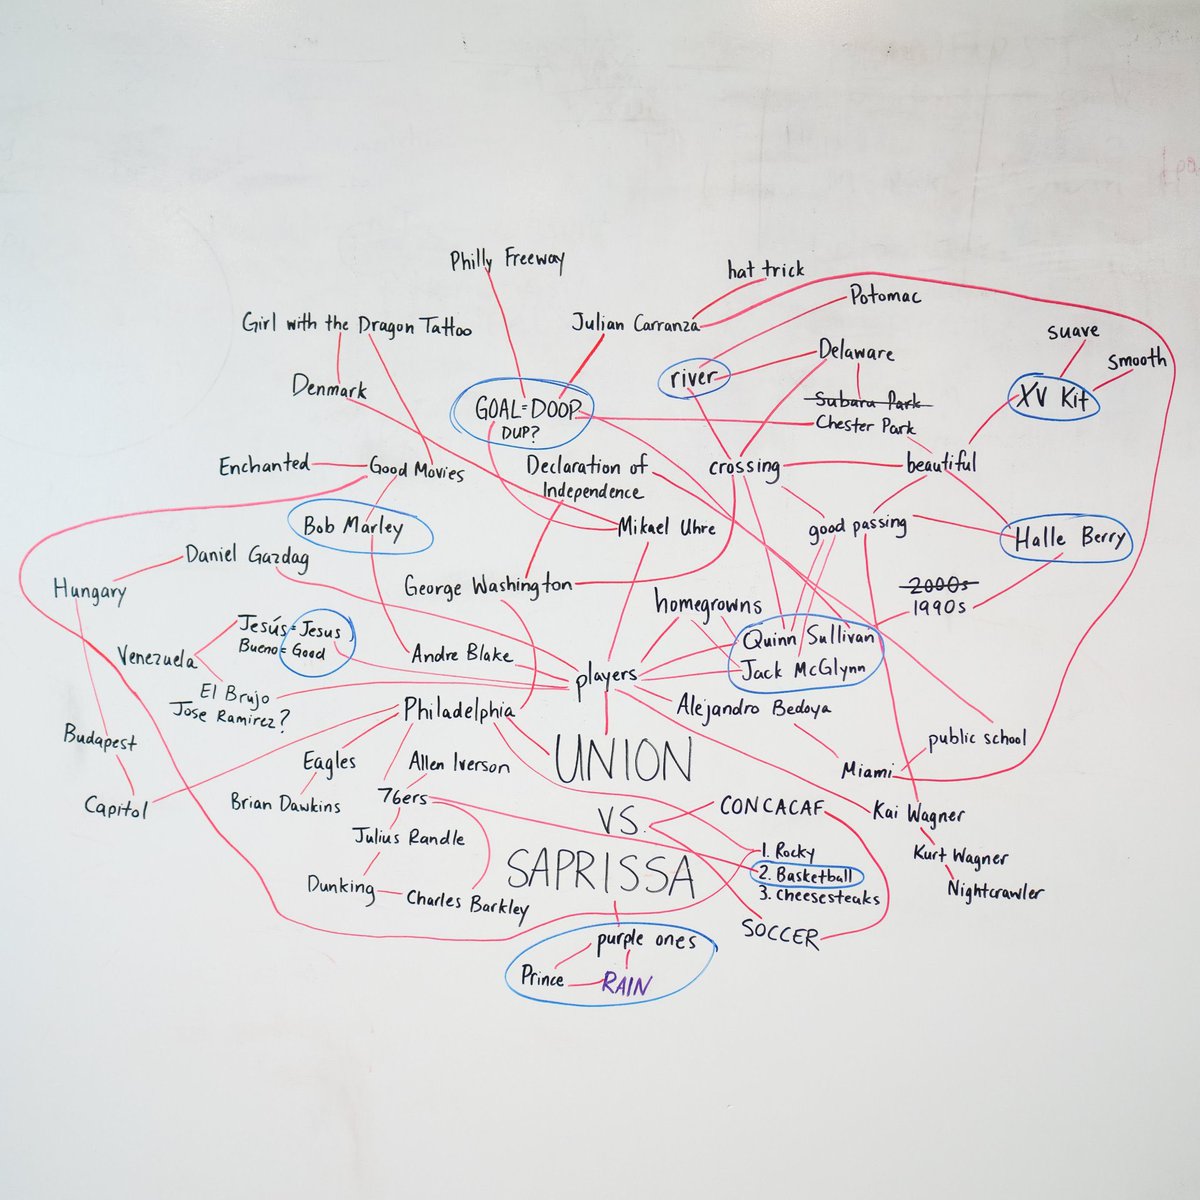 Philly Freeway
hat trick
Potomac
Girl with the Dragon Tattoo
Julian Carranza
suave
Delaware
smooth
river
Denmark
XV Kit
Subaru Park
GOAL=DOOP
DUP?
Chester Park
Enchanted
Good Movies
Declaration of
Independence
crossing
beautiful
Bob Marley
Mikael Uhre
good passing
Halle Berry
Daniel Gazdag
Hungary
George Washington
2000s
1990s
homegrowns
Jesús=Jesus
Bueno=Good
Quinn Sullivan
Jack McGlynn
Venezuela
Andre Blake
players
El Brujo
Jose Ramirez?
Philadelphia
Alejandro Bedoya
Budapest
public school
Eagles
Allen Iverson
UNION
Miami
Capitol
Brian Dawkins
76ers
VS.
CONCACAF
Kai Wagner
Julius Randle
1. Rocky
2. Basketball
3. Cheesesteaks
Kurt Wagner
Nightcrawler
SAPRISSA
Dunking
Charles Barkley
SOCCER
purple ones
Prince
RAIN